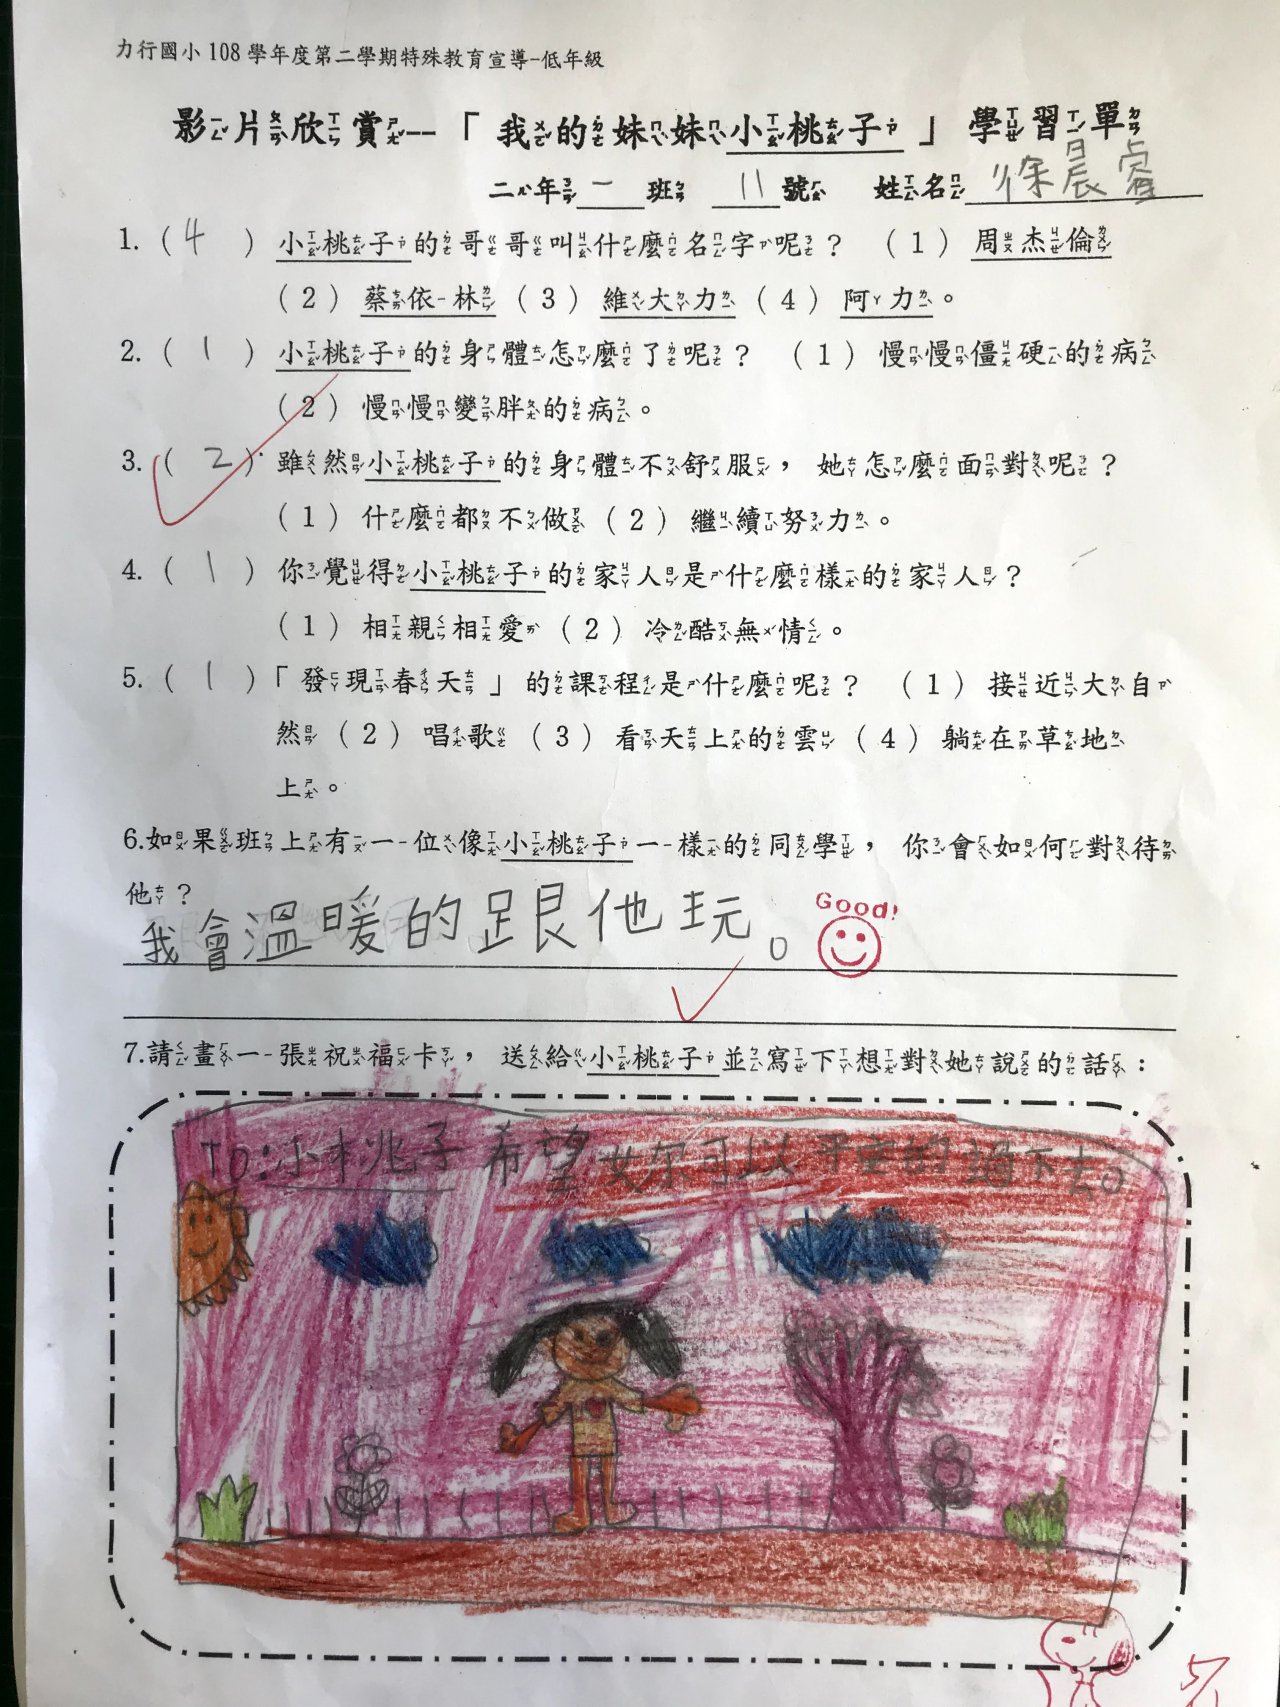 力行國小 108 學年度第二學期特殊教育宣導-低年級
影片欣賞--「我的妹妹小桃子」學習單
二年一班 11號 姓名徐晨睿
1.（4）小桃子的哥哥叫什麼名字呢？（1）周杰倫
（2）蔡依林（3）維大力（4）阿力。
2.（1）小桃子的身體怎麼了呢？（1）慢慢僵硬的病
（2）慢慢變胖的病。
3.（2）雖然小桃子的身體不舒服，她怎麼面對呢？
（1）什麼都不做（2）繼續努力。
4.（1）你覺得小桃子的家人是什麼樣的家人？
（1）相親相愛（2）冷酷無情。
5.（1）「發現春天」的課程是什麼呢？（1）接近大自
然（2）唱歌（3）看天上的雲（4）躺在草地
上。
6.如果班上有一位像小桃子一樣的同學，你會如何對待
他？
我會溫暖的跟他玩。
Good!
7.請畫一張祝福卡，送給小桃子並寫下想對她說的話：
To:小桃子 希望妳可以平安的過下去。